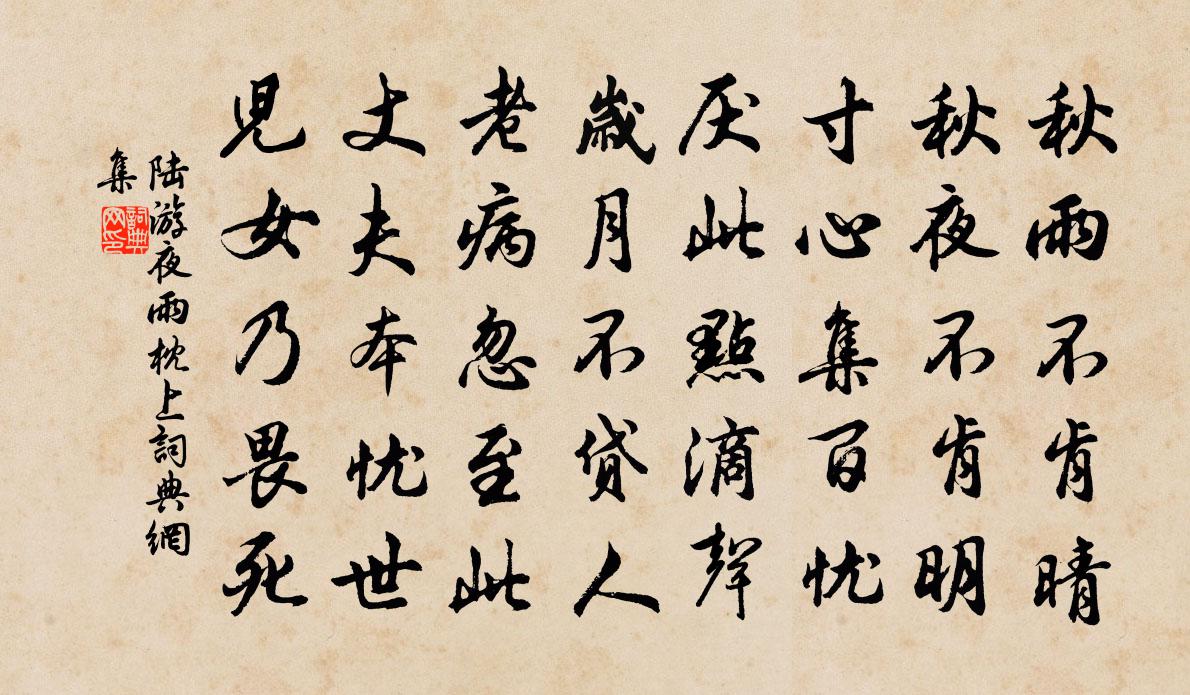 秋雨不肯晴
秋夜不肯明
寸心集百忧
厌此點滴聲
歳月不贷人
老病忽至此
丈夫本忧世
児女乃畏死
陆游夜雨枕上詞典網
集
詞典
网印